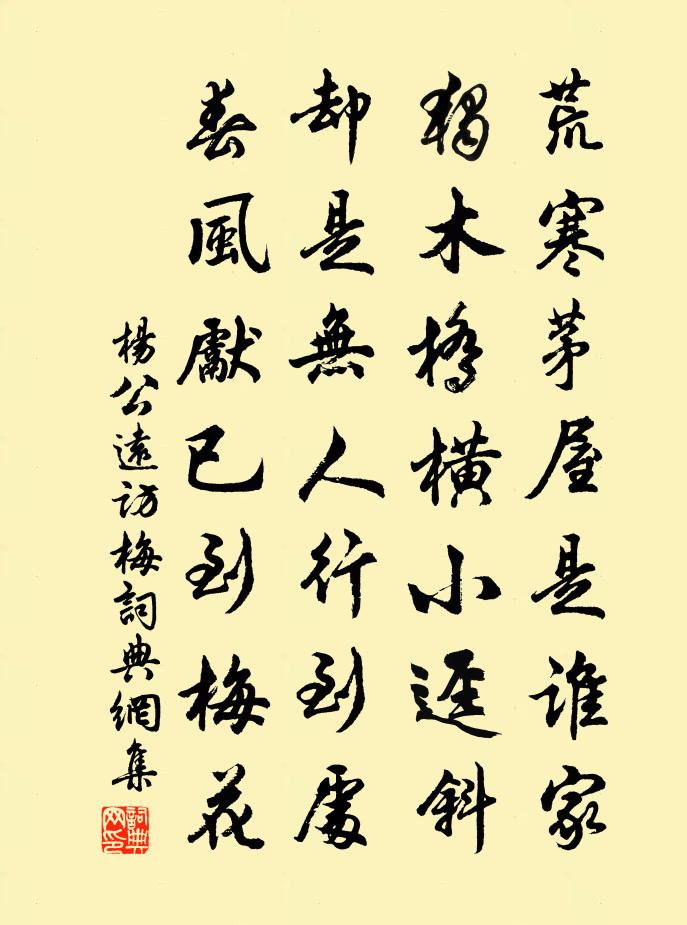 荒寒茅屋是誰家
獨木橋橫小逕斜
却是無人行到處
春風獻已到梅花
楊公遠訪梅詞典網集
詞典網印